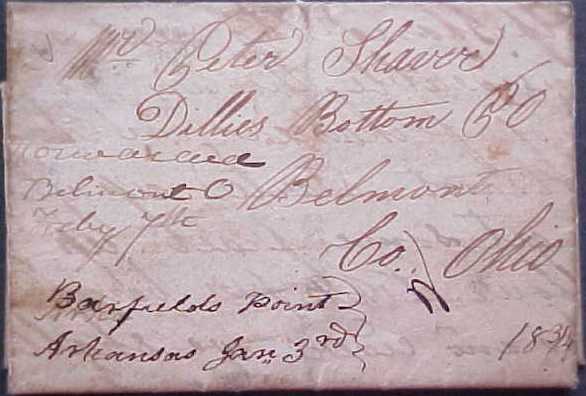 Mr Peter Shaver
Dillies Bottom PO
Forwarded
Belmont O
Feby 7th
Belmont
Co. Ohio
Barfields Point
Arkansas Jan 3rd
1834